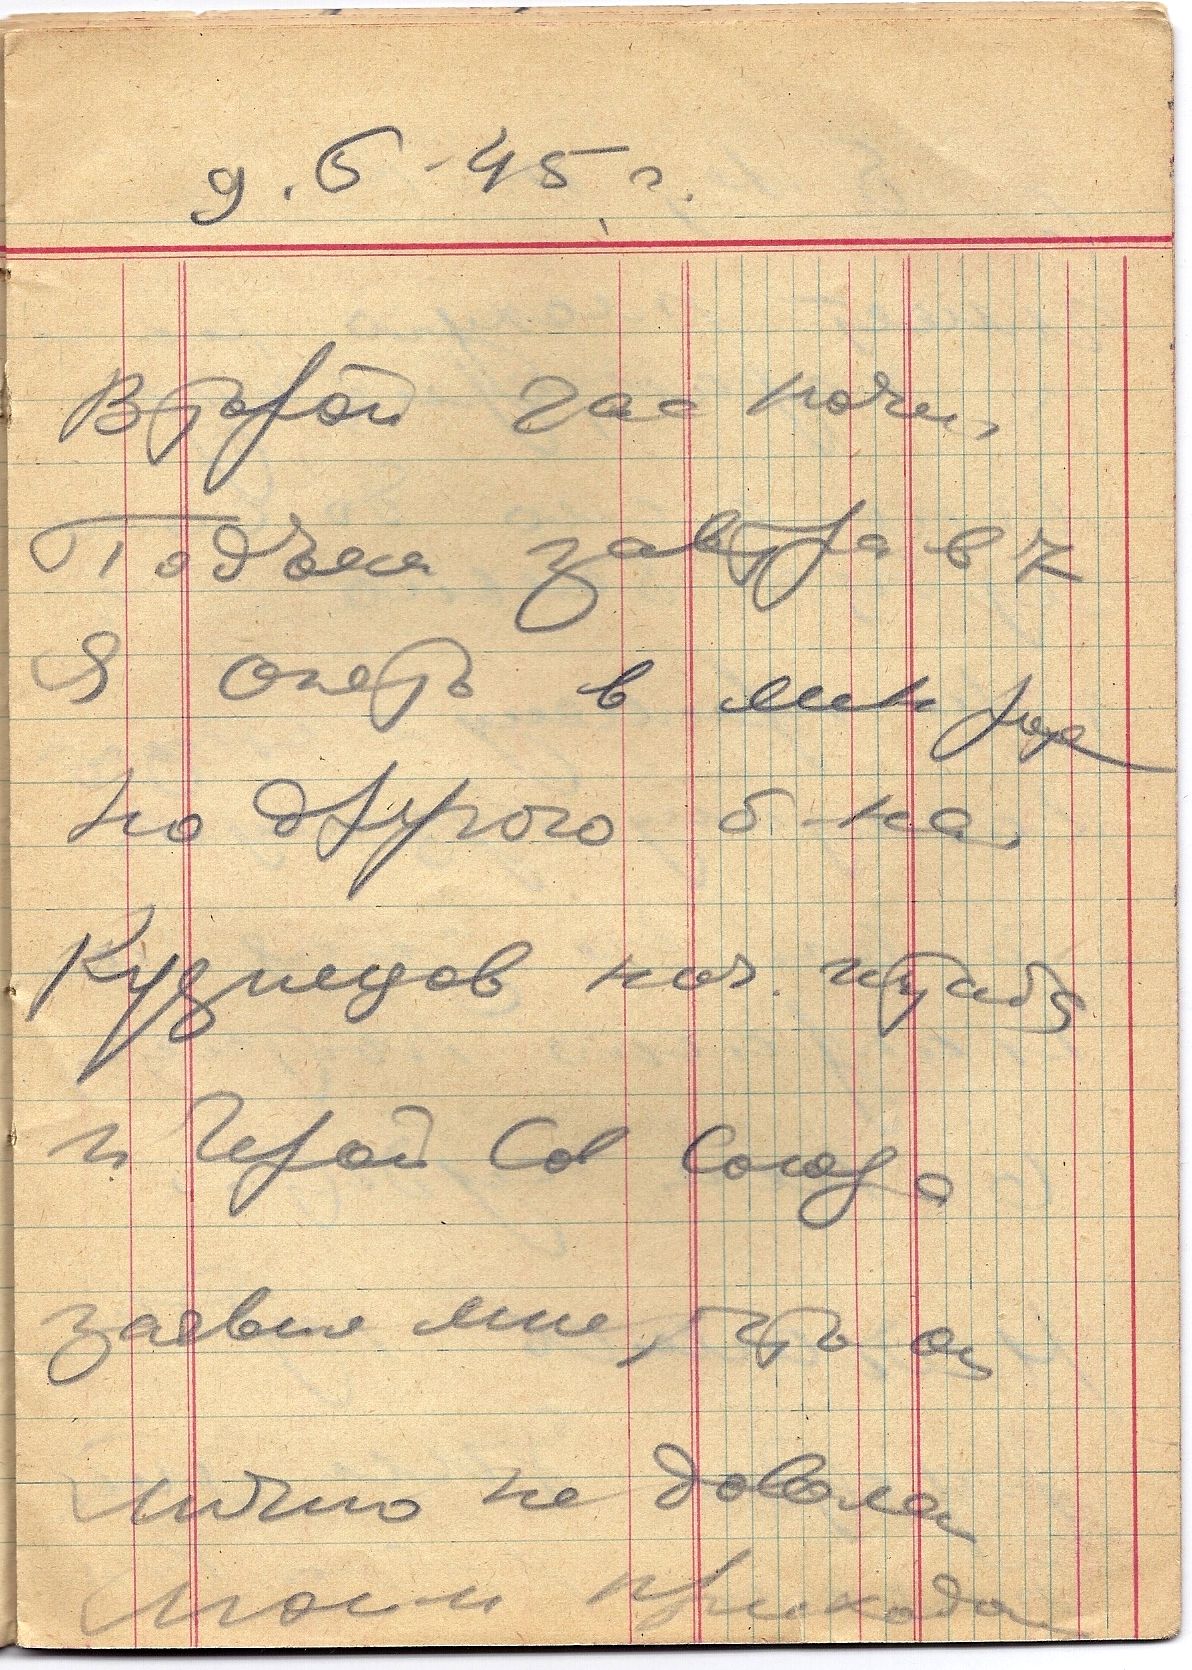 9.5-45 г.
Второй час ночи,
Подъем завтра в 7
Я опеть в мин роте
но другого б-на
Кузнецов нач. штаба
и Герой Сов Союза
заевил мне, что он
лично не доволен
моим приходом